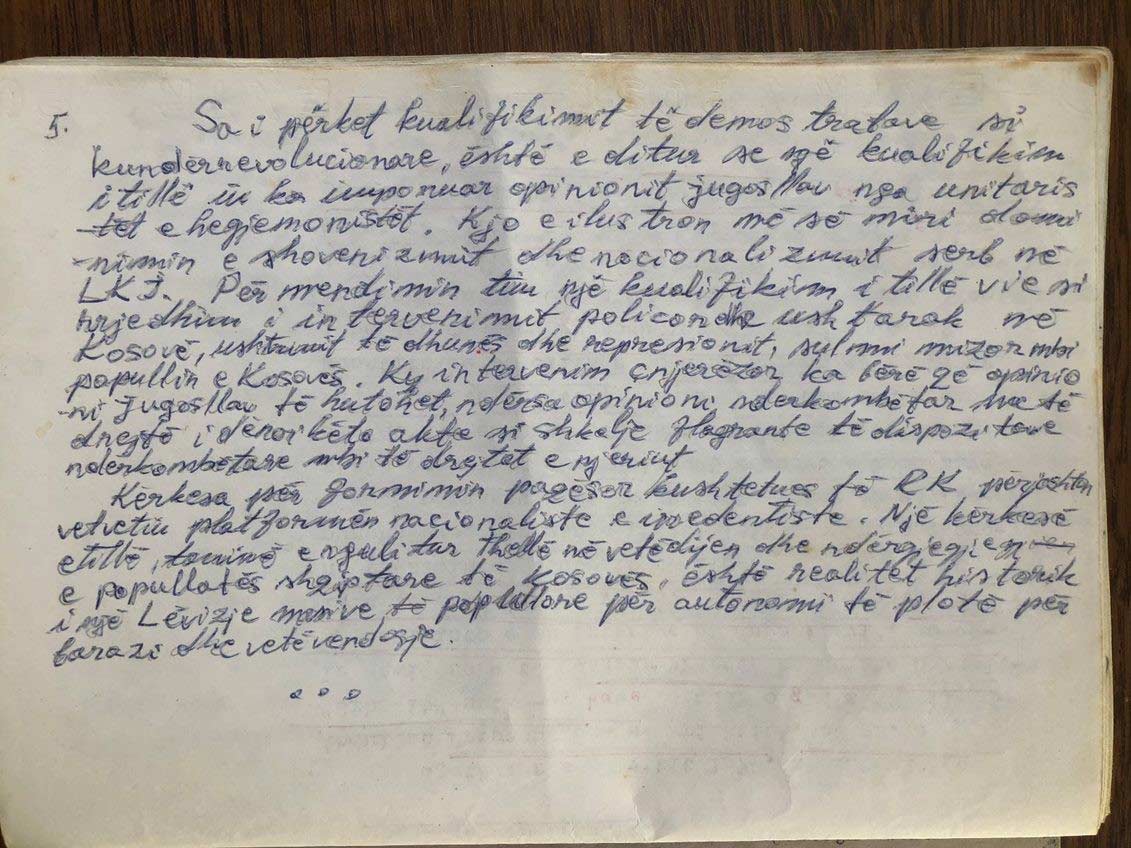 5. Sa i përket kualifikimit të demos tratave si
kundërrevolucionare, është e ditur se një kualifikim
i tillë iu ka imponuar opinionit jugosllav nga unitaris
-tët e hegjemonistët. Kjo e ilustron më së miri domi
-nimin e shovenizmit dhe nacionalizmit serb në
LKJ. Për mendimin tim një kualifikim i tillë vie si
rrjedhim i intervenimit policor dhe ushtarak në
Kosovë, ushtrimit të dhunës dhe represionit, sulmi mizor mbi
popullin e Kosovës. Ky intervenim çnjerëzor ka bërë që opinio
-ni jugosllav të hutohet, ndërsa opinioni nderkombëtar me të
drejtë i dënoi këto akte si shkelje flagrante të dispozitave
nderkombëtare mbi të drejtat e njeriut
Kërkesa për formimin pagësor kushtetues të RK përjashton
vetvetiu platformën nacionaliste e iredentiste. Një kërkesë
e tillë, tanimë e ngulitur thellë në vetëdijen dhe ndërgjegjen
e popullatës shqiptare të Kosovës, është realitet historik
i një Lëvizje masive, të popullore për autonomi të plotë për
barazi dhe vetëvendosje.